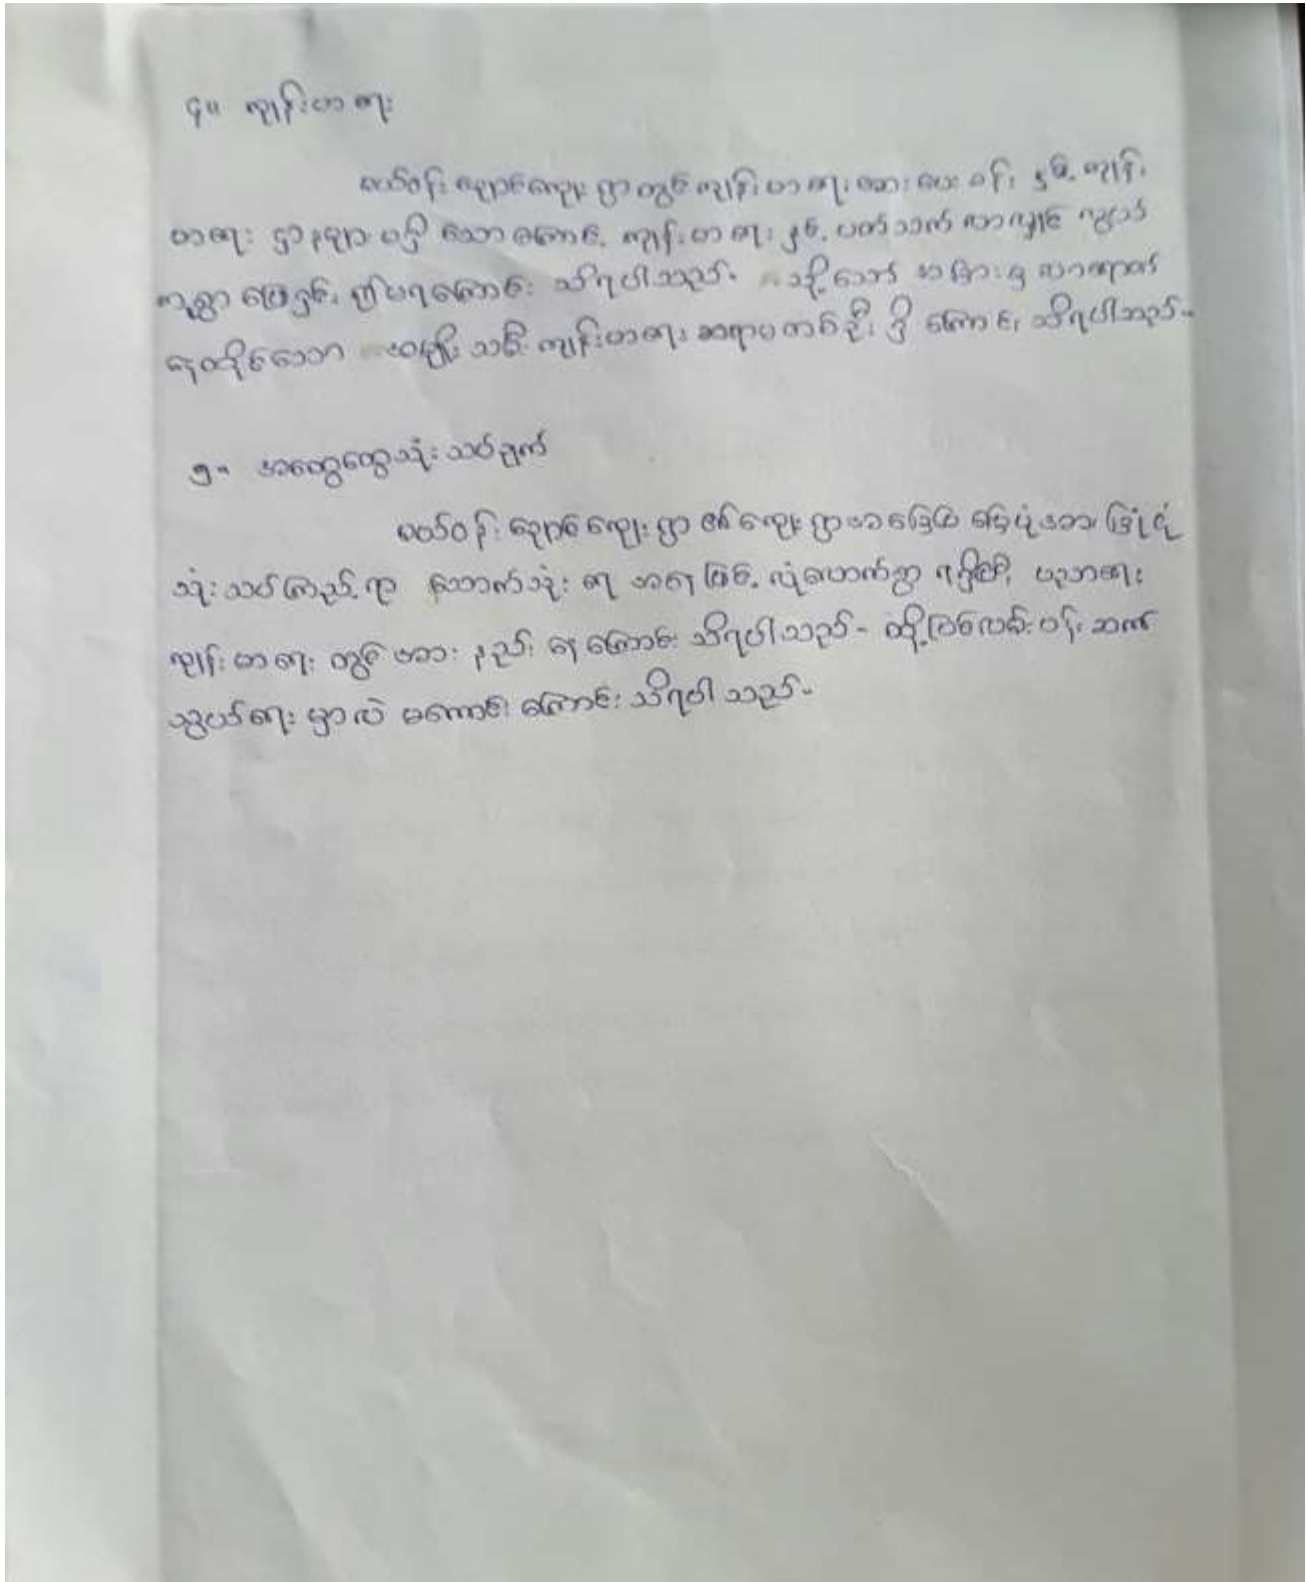 ၄။ ကျန်းမာရေး
မယ်ဝန်းချောင်ကျေးရွာတွင် ကျန်းမာရေးဆေးပေးခန်း နှင့် ကျန်း
မာရေး ဌာနများ မရှိသောကြောင့် ကျန်းမာရေးနှင့် ပတ်သက်လာလျှင်
ကူရွာ ဖြေရှင်း ကြပရကြောင်း သိရပါသည်။ သို့သော် အခြားမှ လာရောက်
နေထိုင်သော အမျိုးသမီး ကျန်းမာရေး ဆရာမတစ်ဦး ရှိကြောင်း သိရပါသည်။
၅။ အထွေထွေသုံးသပ်ချက်
မယ်ဝန်းချောင်ကျေးရွာ ၏ကျေးရွာအခြေခံ အဆောက်အအုံ
သုံးသပ်ကြည့်ရာ သောက်သုံးရေ အနေဖြင့် လုံလောက်စွာ ရရှိပြီး ပညာရေး
ကျန်းမာရေးတွင် အားနည်းနေကြောင်း သိရပါသည်။ ထို့ပြင်လမ်းပန်းဆက်
သွယ်ရေးမှာလဲ မကောင်းကြောင်း သိရပါသည်။